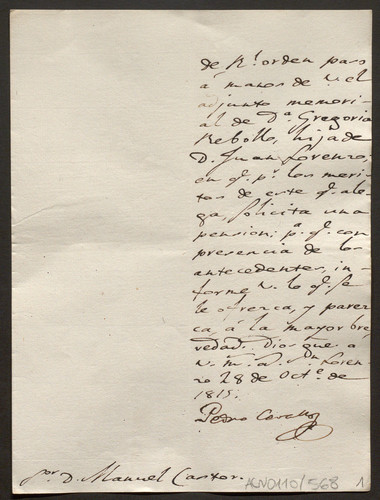 de Rl. orden paso
á manos de V. el
adjunto memori-
al de Da. Gregoria
Rebollo, hija de
D. Juan Lorenzo,
en q. pr. los meri-
tos de este q. ale-
ga, solicita una
pension: pa. q. con
presencia de los
antecedentes, in-
forme V. lo q. se
le ofrezca, y parez-
ca, á la mayor bre-
vedad. Dios gue. á
V. m. a. Sn. Loren-
zo 28 de Octe. de
1815.
Pedro
Sor. D. Manuel Castor.
AGN0110/568 1